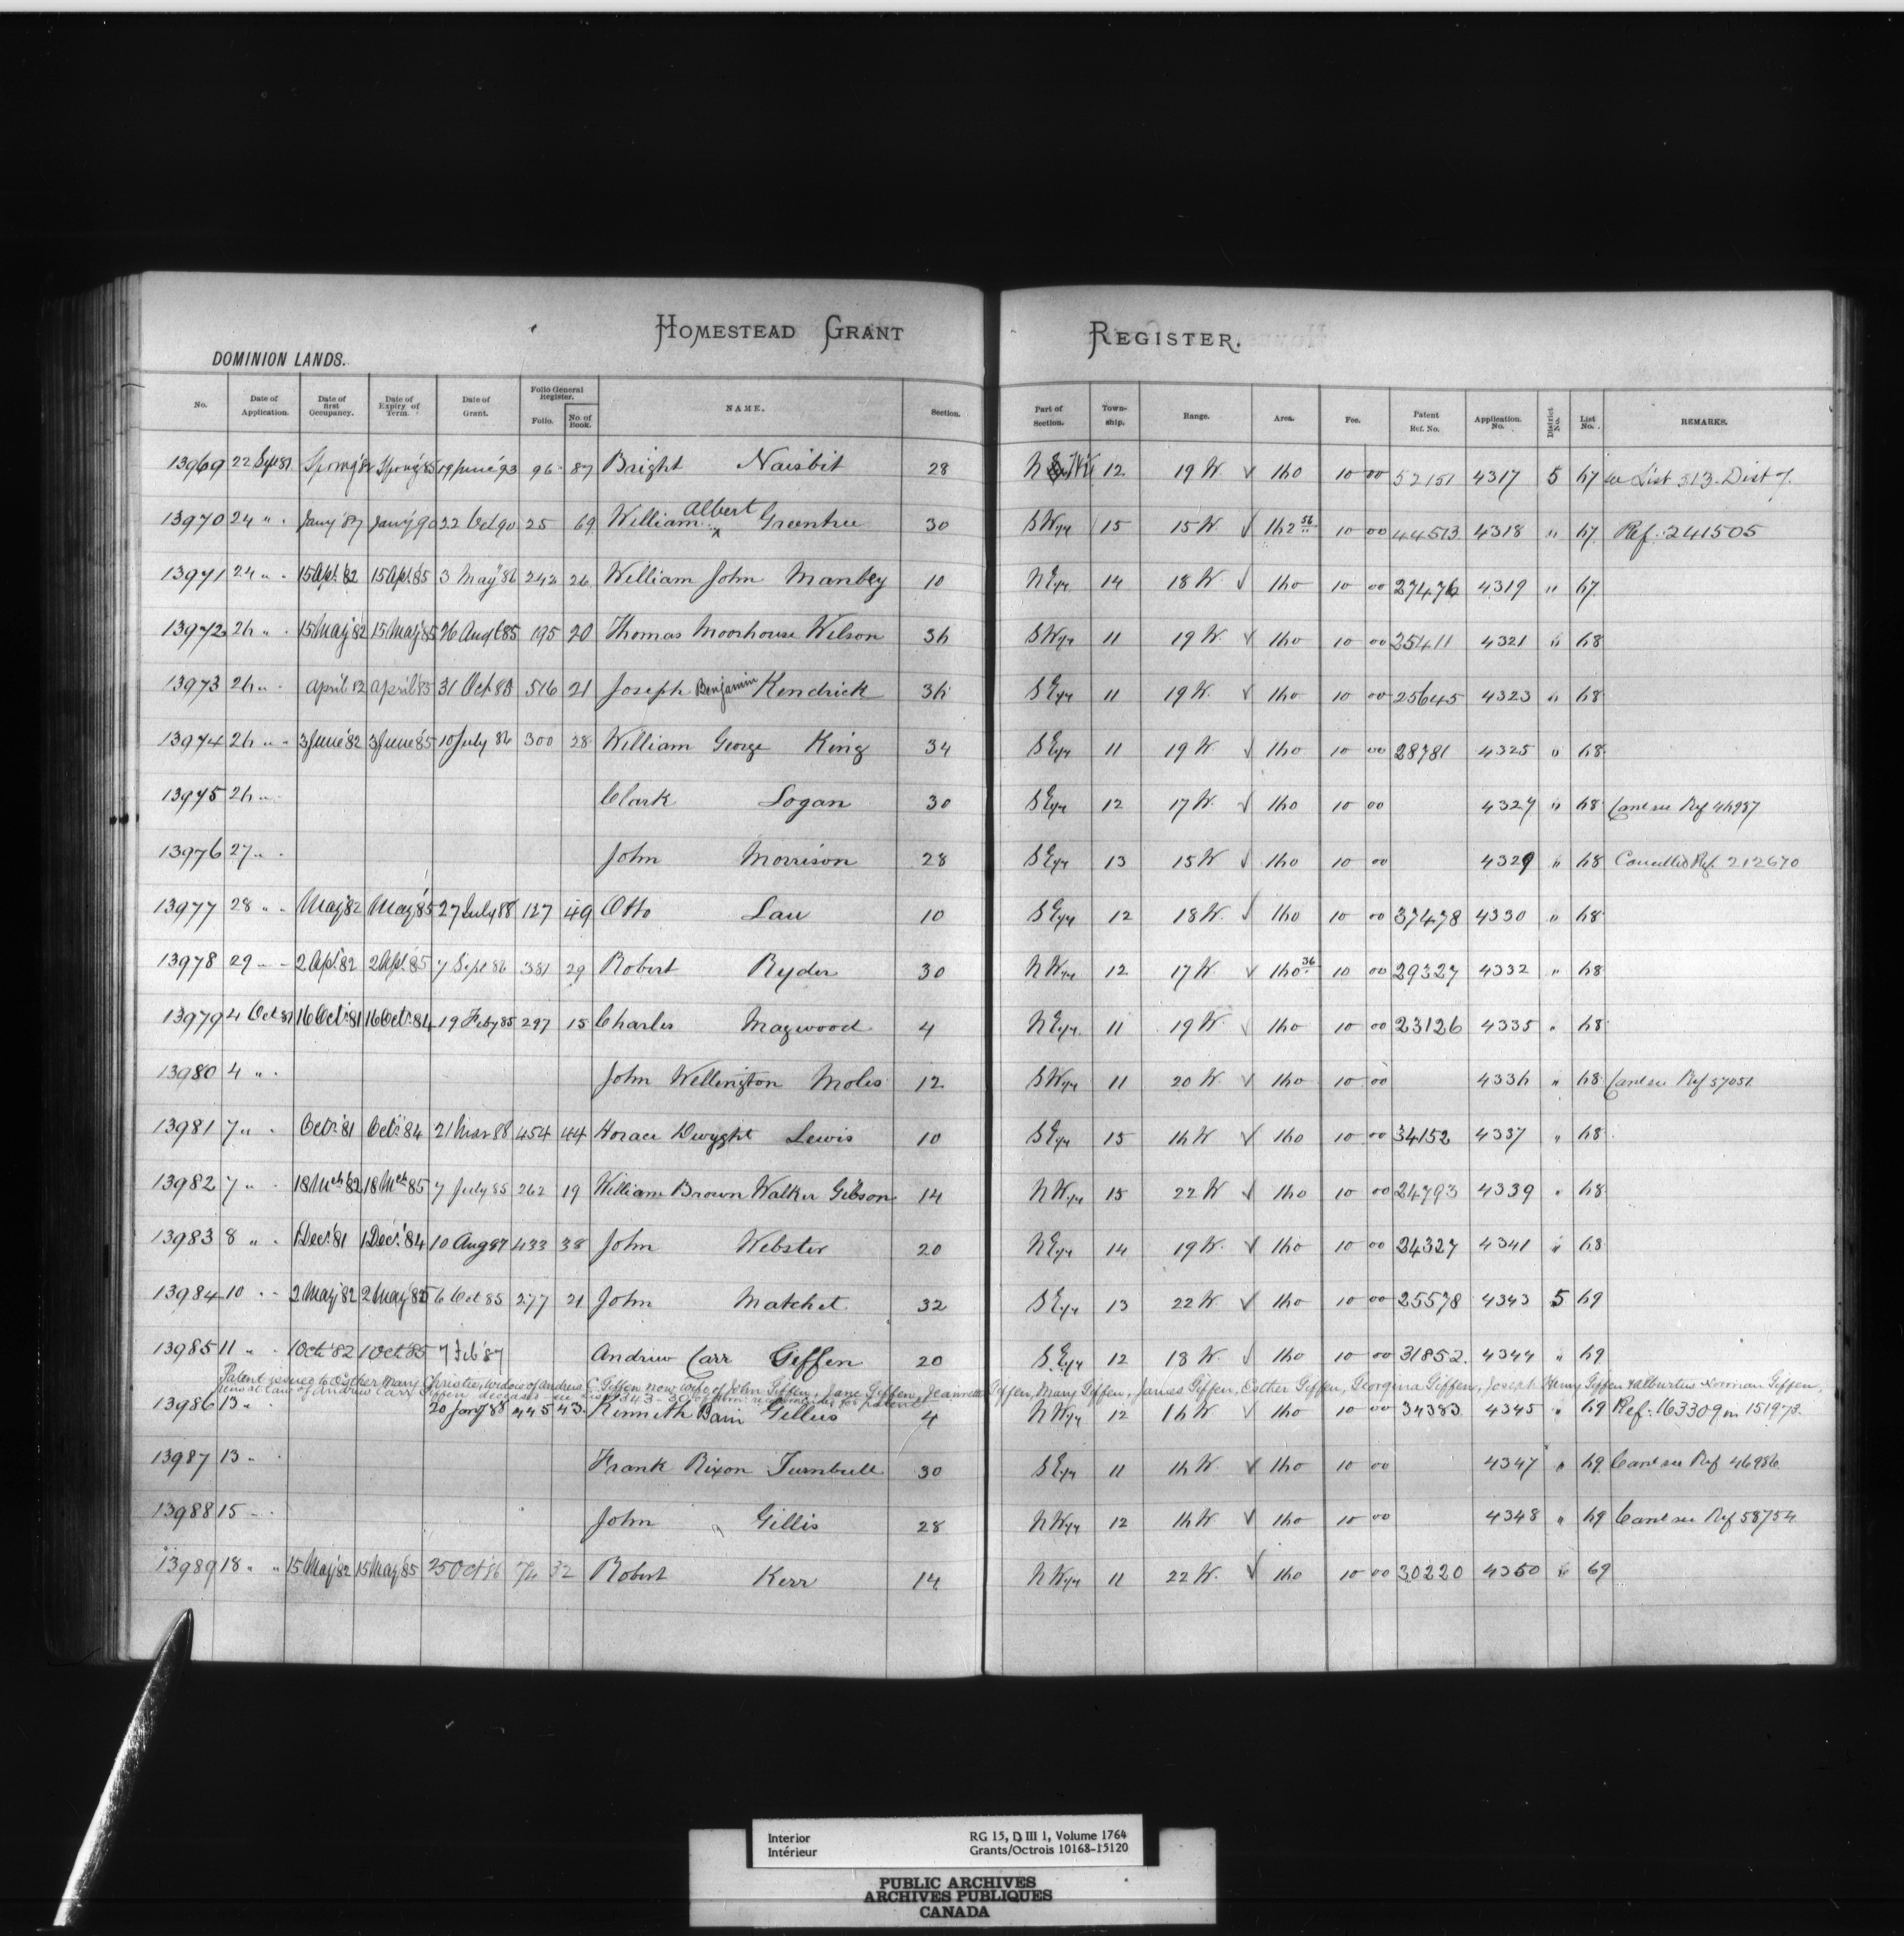 HOMESTEAD GRANT REGISTER.
DOMINION LANDS.
No. Date of Application. Date of first Occupancy. Date of Expiry of Term. Date of Grant. Folio General Register. Folio. No. of Book. NAME. Section. Part of Section. Township. Range. Area. Fee. Patent Ref. No. Application No. District No. List No. REMARKS.
13969 22 Sept 81 Spring '82 Spring '85 19 June '93 96 87 Bright Naisbit 28 N 12 19 W. √ 160 10 00 52151 4317 5 67 see List 513. Dist 7.
13970 24 " . Jany '87 Jany '90 22 Oct 90 25 69 William Albert Greentree 30 SW1/4 15 15 W √ 162 56 10 00 44513 4318 " 67 Ref. 241505
13971 24 " . 15 Apl. '82 15 Apl. '85 3 May '86 242 26 William John Manbey 10 NE1/4 14 18 W. √ 160 10 00 27476 4319 " 67
13972 26 " . 15 May '82 15 May '85 26 Augt 85 195 20 Thomas Moorhouse Wilson 36 SW1/4 11 19 W. √ 160 10 00 25411 4321 " 68
13973 26 " . April 82 April 85 31 Oct 85 516 21 Joseph Benjamin Kendrick 36 SE1/4 11 19 W. √ 160 10 00 25645 4323 " 68
13974 26 " . 3 June '82 3 June '85 10 July 86 300 28 William George King 34 SE1/4 11 19 W √ 160 10 00 28781 4325 " 68
13975 26 " . Clark Logan 30 SE1/4 12 17 W. √ 160 10 00 4327 " 68 Canc see Ref 46987
13976 27 " . John Morrison 28 SE1/4 13 15 W √ 160 10 00 4329 " 68 Cancelled Ref. 212670
13977 28 " . May '82 May '85 27 July 88 127 49 Otto Lau 10 SE1/4 12 18 W. √ 160 10 00 37478 4330 " 68
13978 29 " . 2 Apl. 82 2 Apl. 85 7 Sept 86 381 29 Robert Ryder 30 NW1/4 12 17 W √ 160 36 10 00 29327 4332 " 68
13979 4 Oct 81 16 Oct. 81 16 Oct. 84 19 Feby 85 297 15 Charles Magwood 4 NE1/4 11 19 W. √ 160 10 00 23126 4335 " 68
13980 4 " . John Wellington Moles 12 SW1/4 11 20 W. √ 160 10 00 4336 " 68 Canc see Ref 57051
13981 7 " . Oct. 81 Oct. 84 21 Mar 88 454 44 Horace Dwyght Lewis 10 SE1/4 15 16 W √ 160 10 00 34152 4337 " 68
13982 7 " . 18 Mch 82 18 Mch 85 7 July 85 262 19 William Brown Walker Gibson 14 NW1/4 15 22 W √ 160 10 00 24793 4339 " 68
13983 8 " . 1 Dec. '81 1 Dec. '84 10 Aug 87 433 38 John Webster 20 NE1/4 14 19 W. √ 160 10 00 24327 4341 " 68
13984 10 " . 2 May '82 2 May '85 6 Oct 85 277 21 John Matchet 32 SE1/4 13 22 W. √ 160 10 00 25578 4343 5 69
13985 11 " . 1 Oct. '82 1 Oct. 85 7 Feb '87 Andrew Carr Geffen 20 SE1/4 12 18 W. √ 160 10 00 31852 4344 " 69
Patent issued to Esther Mary Christie, widow of Andrew C. Giffen now wife of John Giffen, Jane Giffen, Jeannette Giffen, Mary Giffen, James Giffen, Esther Giffen, Georgina Giffen, Joseph Henry Giffen & Alburtus Norman Giffen,
heirs at law of Andrew Carr Giffen deceased see List 343 recommended for patent
13986 13 " . 20 Jany '88 445 43 Kenneth Bain Gellies 4 NW1/4 12 16 W. √ 160 10 00 34383 4345 " 69 Ref. 163309 in 151973
13987 13 " . Frank Rixon Turnbull 30 SE1/4 11 16 W. √ 160 10 00 4347 " 69 Canc see Ref 46986
13988 15 " . John Gillis 28 NW1/4 12 16 W. √ 160 10 00 4348 " 69 Canc see Ref 58754
13989 18 " " 15 May '82 15 May '85 25 Oct '86 74 32 Robert Kerr 14 NW1/4 11 22 W. √ 160 10 00 30220 4350 " 69
Interior RG 15, D III 1, Volume 1764
Intérieur Grants/Octrois 10168-15120
PUBLIC ARCHIVES
ARCHIVES PUBLIQUES
CANADA